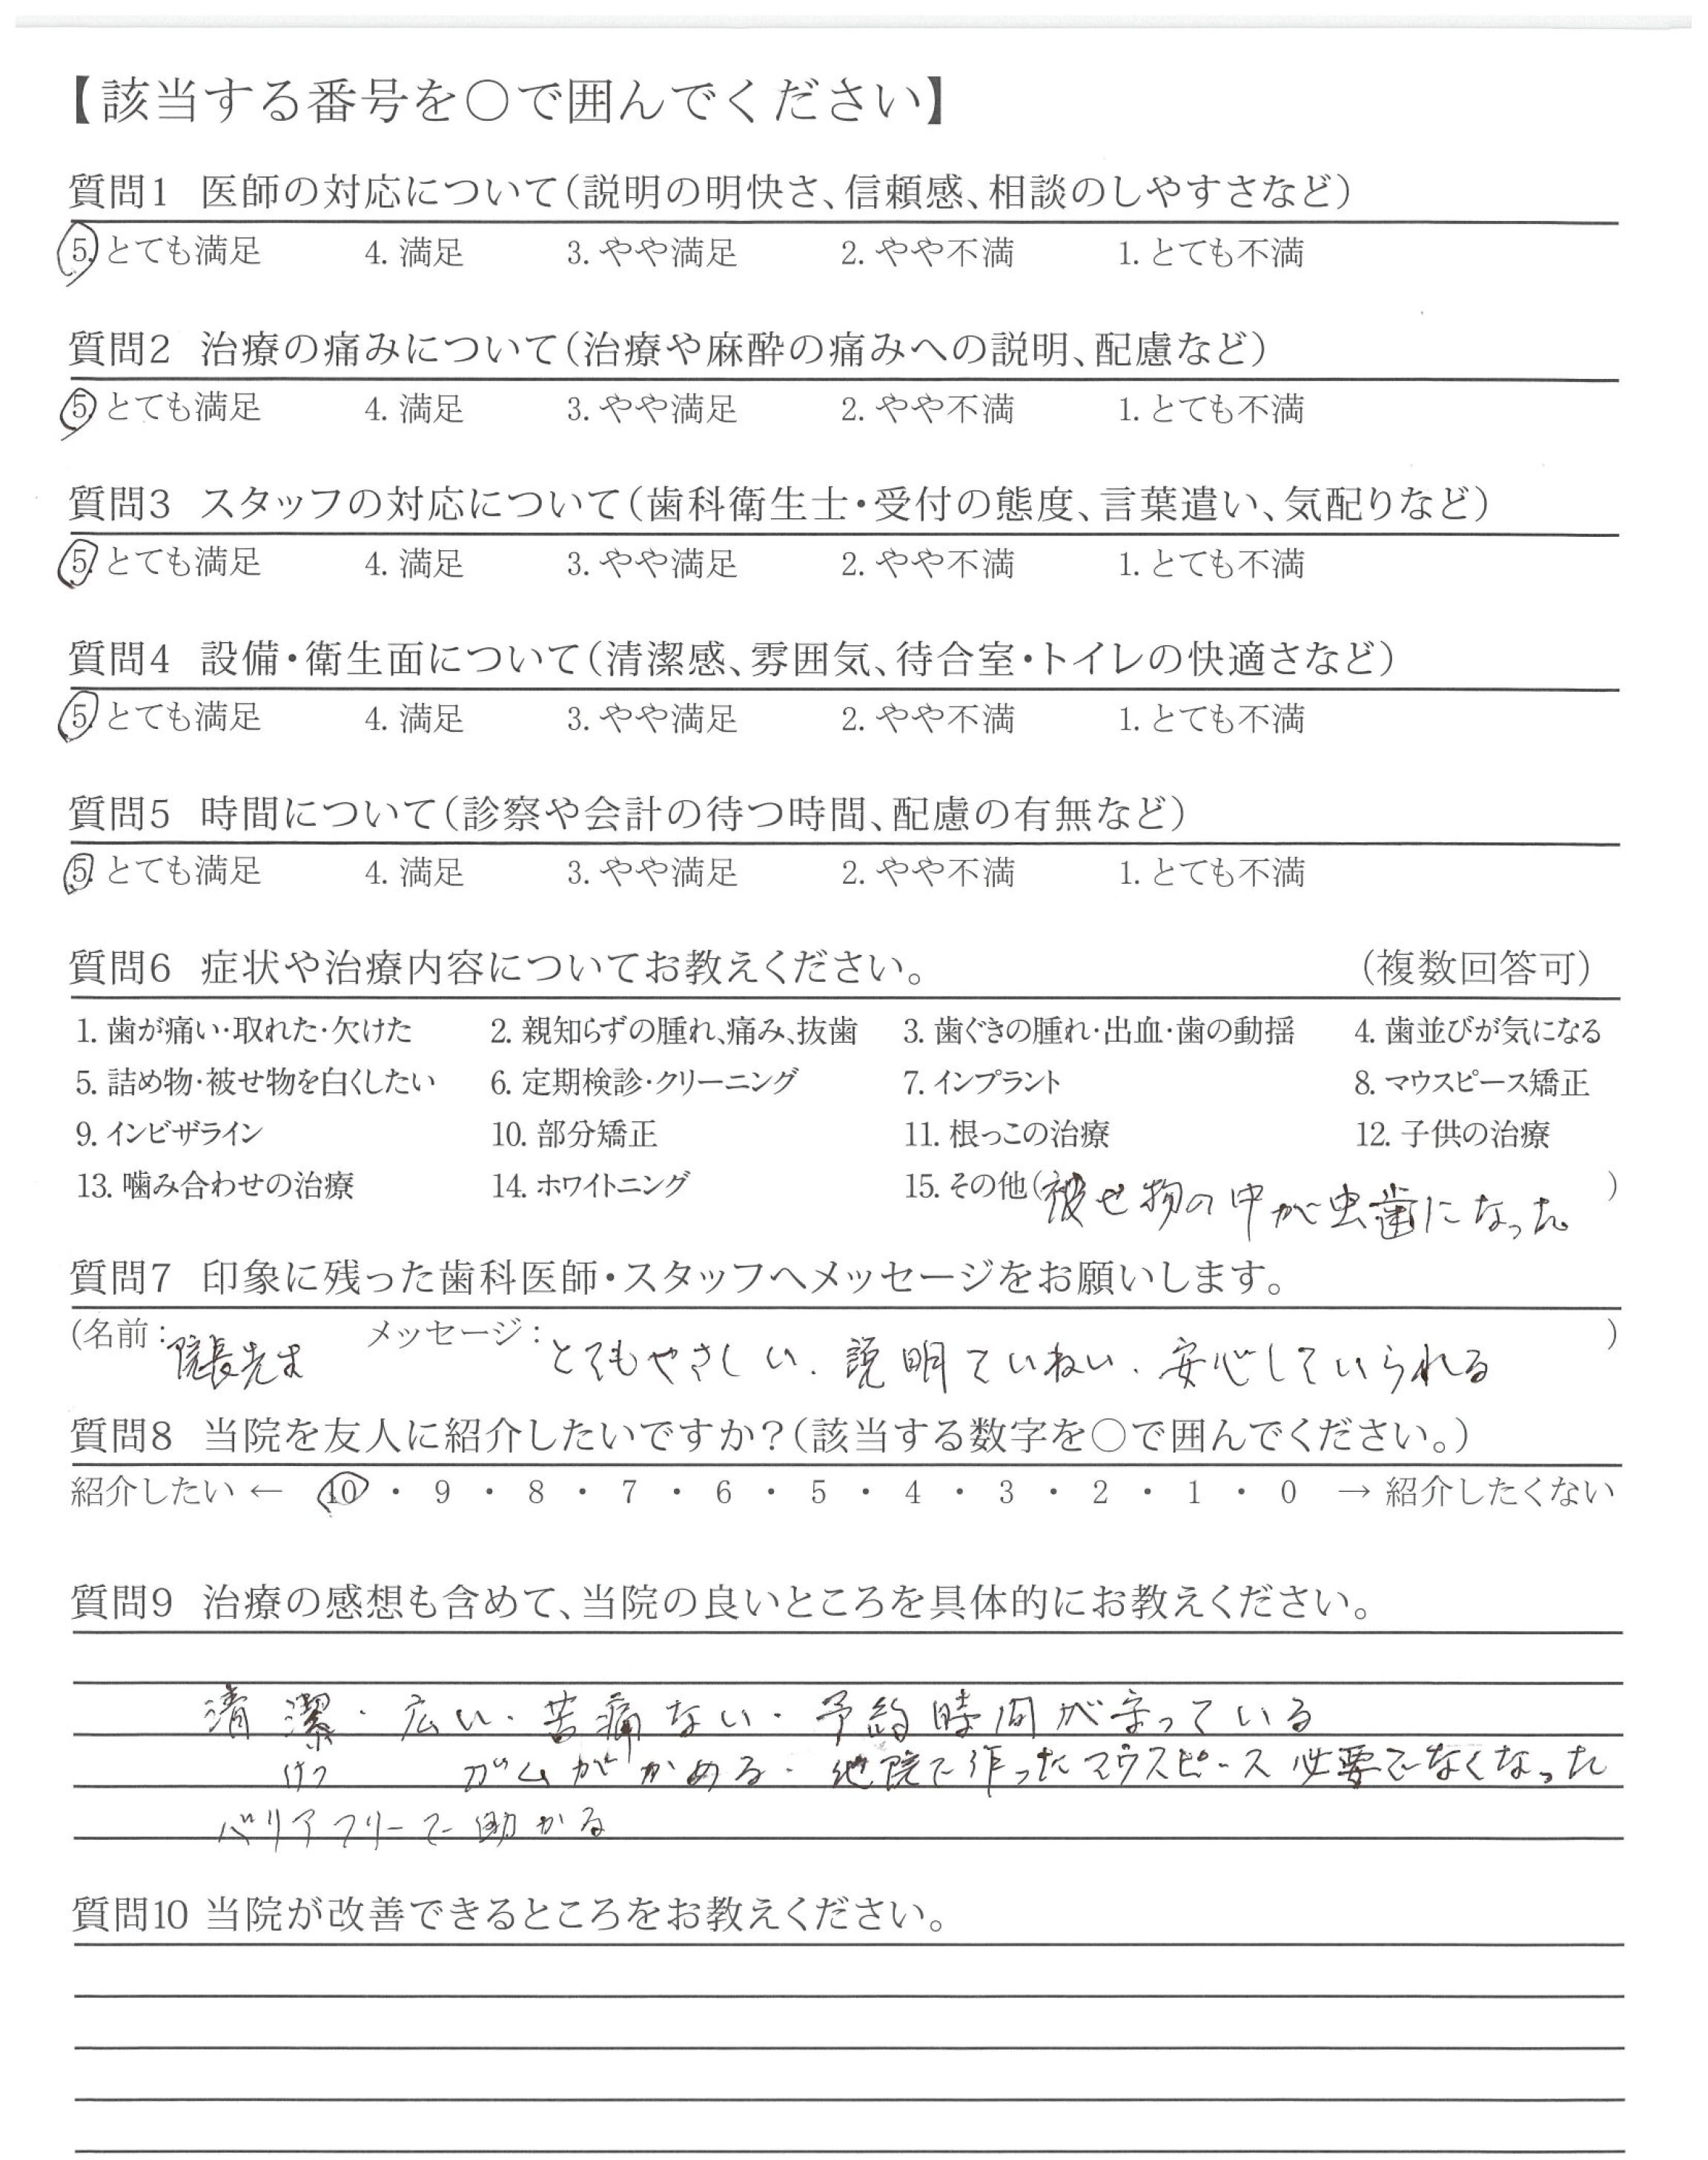 【該当する番号を○で囲んでください】
質問1 医師の対応について(説明の明快さ、信頼感、相談のしやすさなど)
5. とても満足 4. 満足 3. やや満足 2. やや不満 1. とても不満
質問2 治療の痛みについて(治療や麻酔の痛みへの説明、配慮など)
5. とても満足 4. 満足 3. やや満足 2. やや不満 1. とても不満
質問3 スタッフの対応について(歯科衛生士・受付の態度、言葉遣い、気配りなど)
5. とても満足 4. 満足 3. やや満足 2. やや不満 1. とても不満
質問4 設備・衛生面について(清潔感、雰囲気、待合室・トイレの快適さなど)
5. とても満足 4. 満足 3. やや満足 2. やや不満 1. とても不満
質問5 時間について(診察や会計の待つ時間、配慮の有無など)
5. とても満足 4. 満足 3. やや満足 2. やや不満 1. とても不満
質問6 症状や治療内容についてお教えください。 (複数回答可)
1. 歯が痛い・取れた・欠けた 2. 親知らずの腫れ、痛み、抜歯 3. 歯ぐきの腫れ・出血・歯の動揺 4. 歯並びが気になる
5. 詰め物・被せ物を白くしたい 6. 定期検診・クリーニング 7. インプラント 8. マウスピース矯正
9. インビザライン 10. 部分矯正 11. 根っこの治療 12. 子供の治療
13. 噛み合わせの治療 14. ホワイトニング 15. その他(被せ物の中が虫歯になった)
質問7 印象に残った歯科医師・スタッフへメッセージをお願いします。
(名前:院長先生 メッセージ:とてもやさしい. 説明ていねい. 安心していられる)
質問8 当院を友人に紹介したいですか?(該当する数字を○で囲んでください。)
紹介したい ← 10 ・ 9 ・ 8 ・ 7 ・ 6 ・ 5 ・ 4 ・ 3 ・ 2 ・ 1 ・ 0 → 紹介したくない
質問9 治療の感想も含めて、当院の良いところを具体的にお教えください。
清潔・広い・苦痛ない・予約時間が守っている
けつ ガムがかめる・他院で作ったマウスピース必要でなくなった
バリアフリーで助かる
質問10 当院が改善できるところをお教えください。